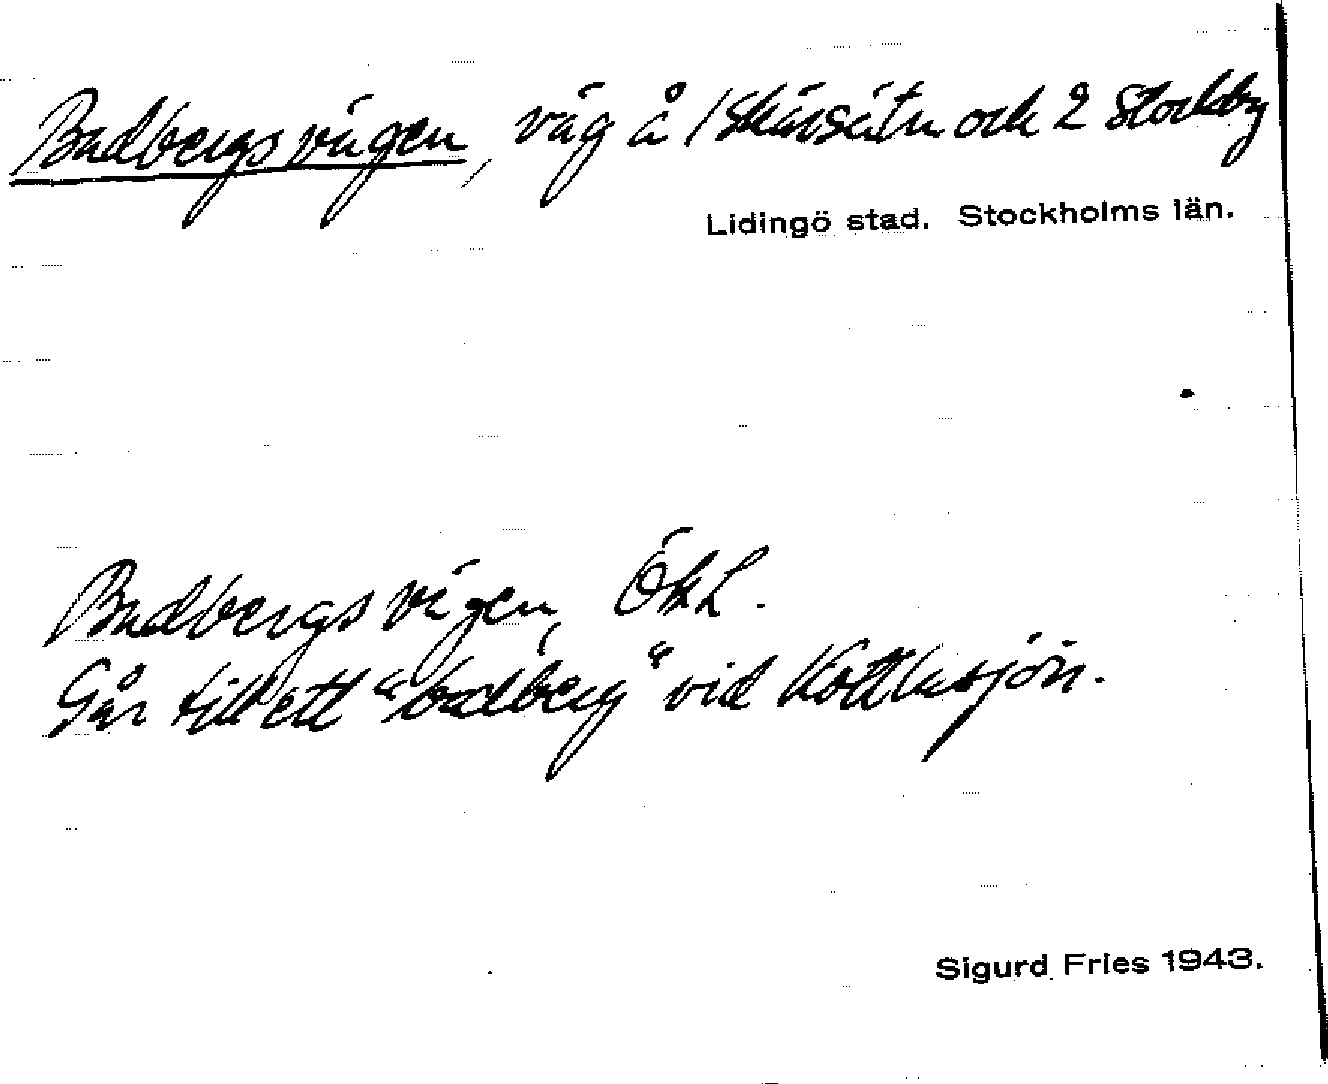 Badbergsvägen, väg å 1 Skärsätra och 2 Stockby
Lidingö stad. Stockholms län.
Badbergsvägen, ÖKL.
Går till ett "badberg" vid Kottlasjön.
Sigurd Fries 1943.